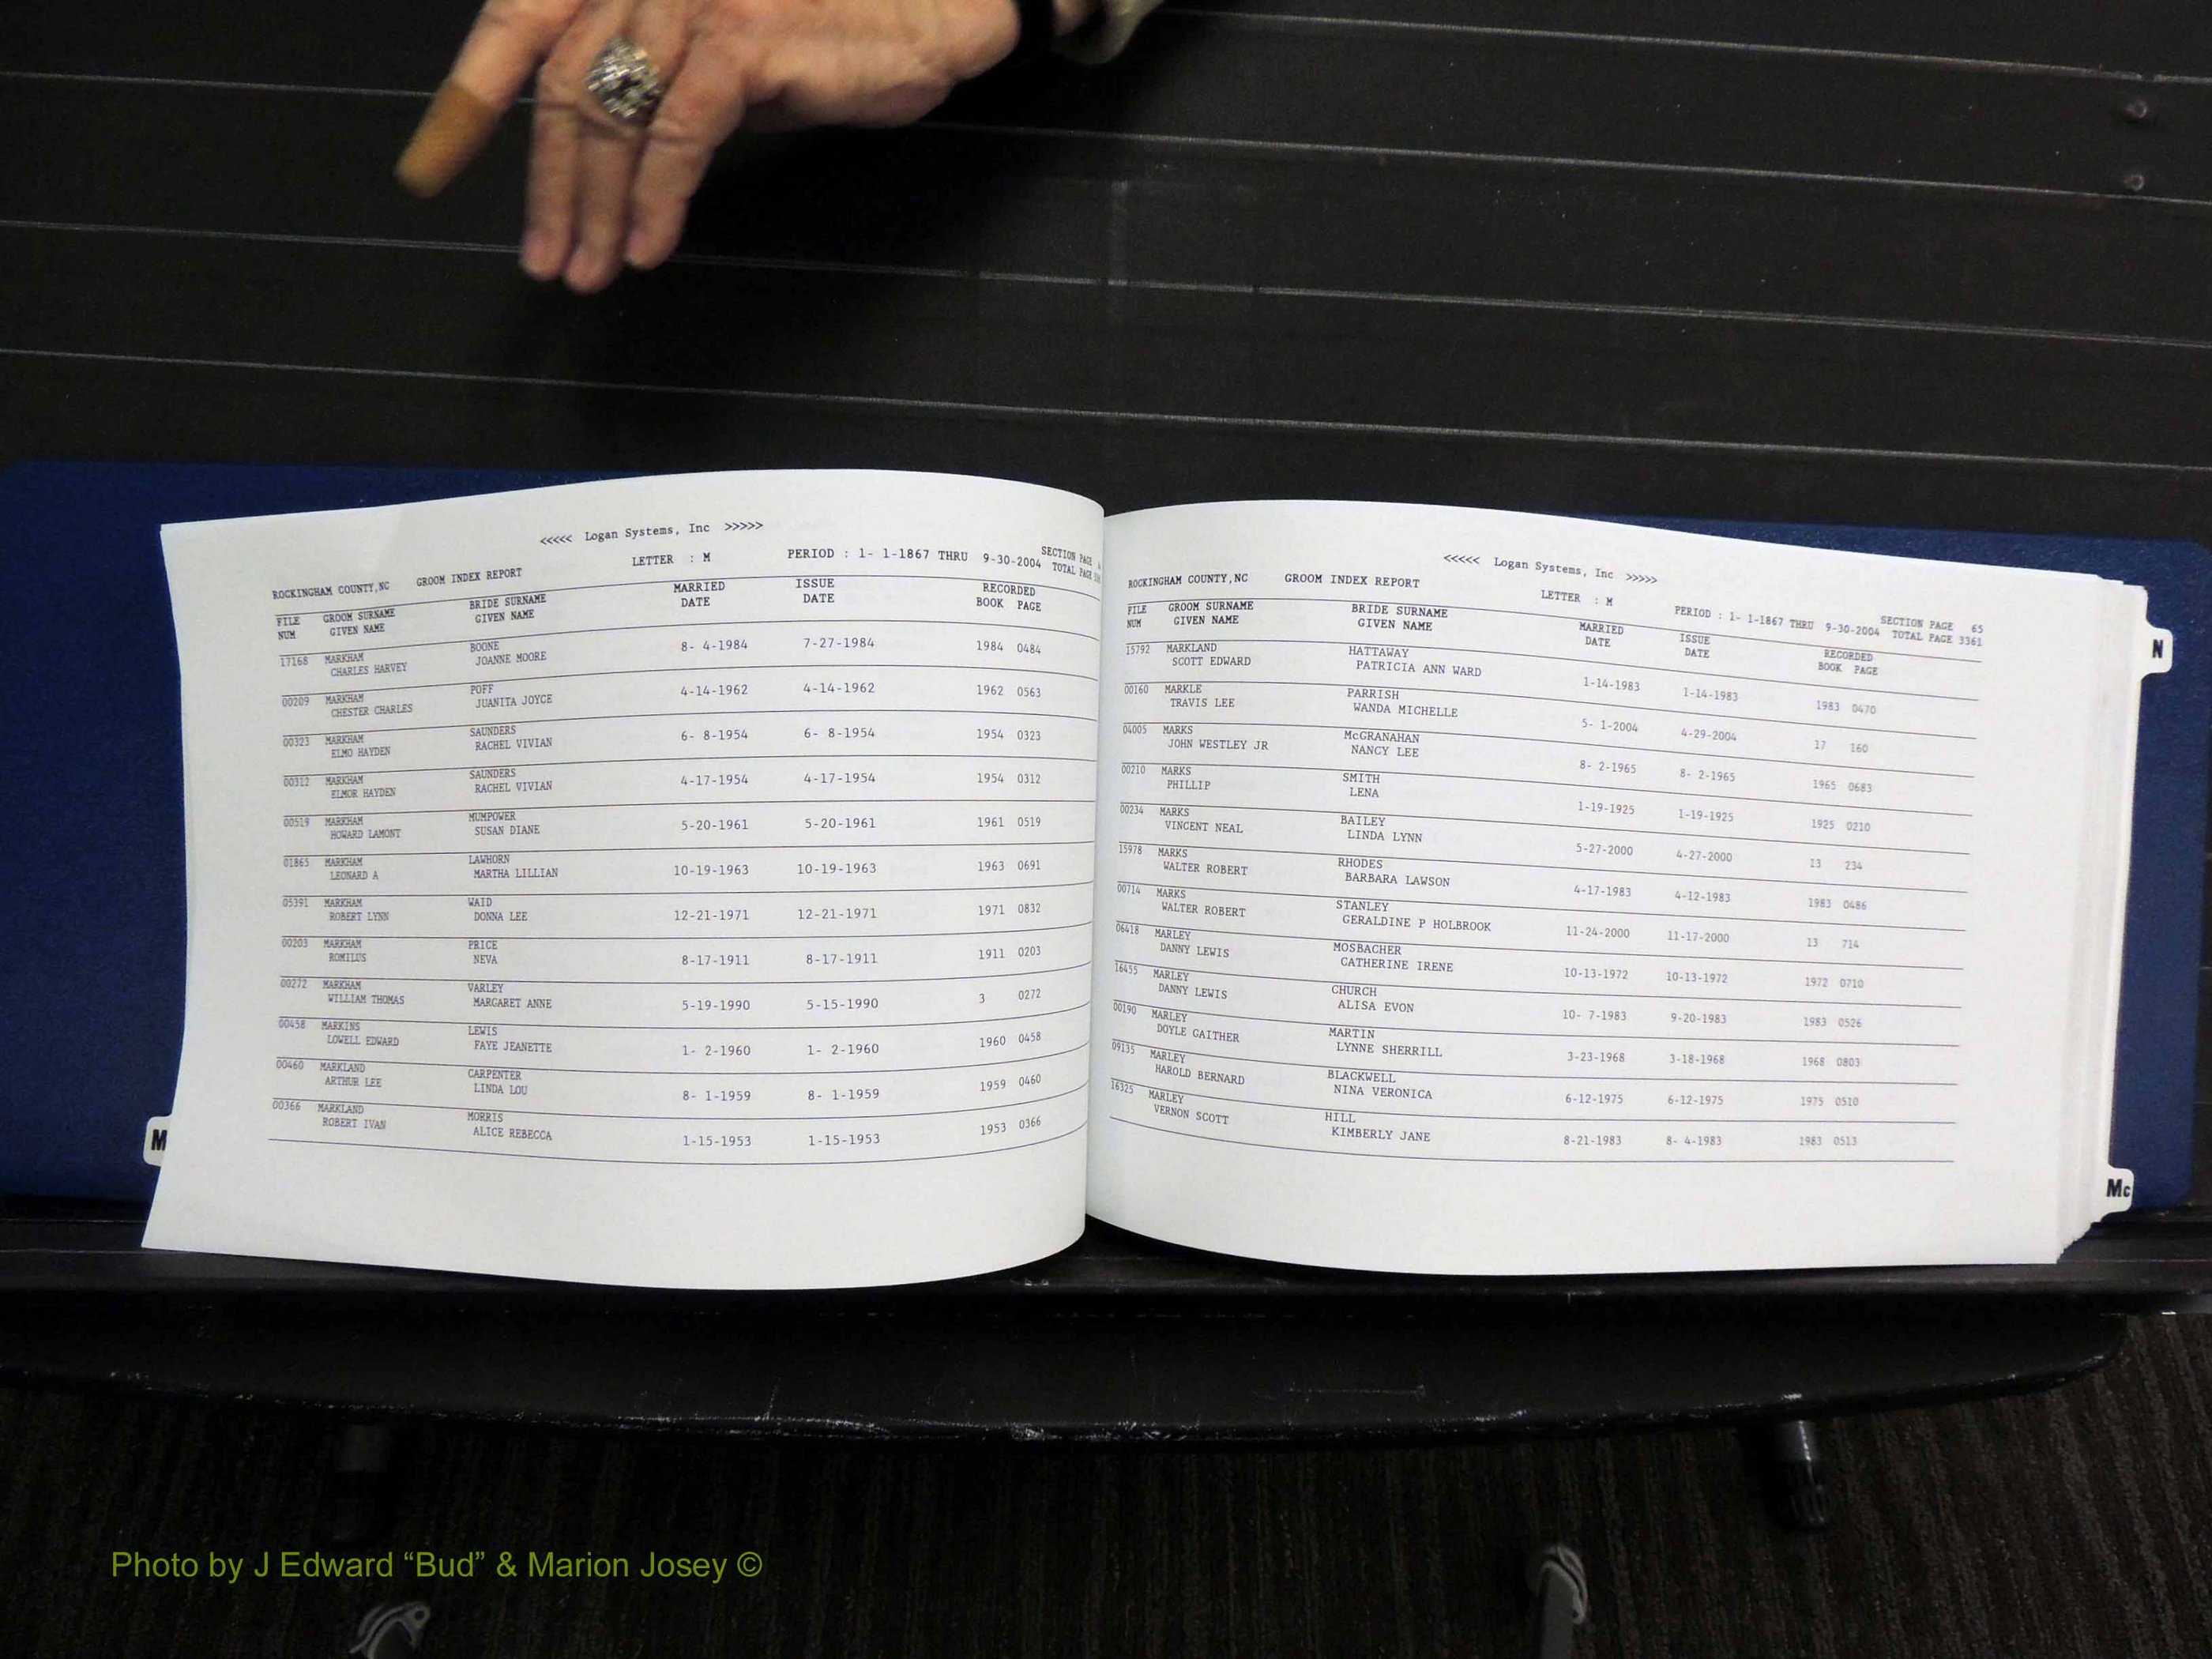 <<<<< Logan Systems, Inc >>>>>
ROCKINGHAM COUNTY,NC GROOM INDEX REPORT LETTER : M PERIOD : 1- 1-1867 THRU 9-30-2004 SECTION PAGE
TOTAL PAGE
FILE GROOM SURNAME BRIDE SURNAME MARRIED ISSUE RECORDED
NUM GIVEN NAME GIVEN NAME DATE DATE BOOK PAGE
17168 MARKHAM BOONE 8- 4-1984 7-27-1984 1984 0484
CHARLES HARVEY JOANNE MOORE
00209 MARKHAM POFF 4-14-1962 4-14-1962 1962 0563
CHESTER CHARLES JUANITA JOYCE
00323 MARKHAM SAUNDERS 6- 8-1954 6- 8-1954 1954 0323
ELMO HAYDEN RACHEL VIVIAN
00312 MARKHAM SAUNDERS 4-17-1954 4-17-1954 1954 0312
ELMOR HAYDEN RACHEL VIVIAN
00519 MARKHAM MUMPOWER 5-20-1961 5-20-1961 1961 0519
HOWARD LAMONT SUSAN DIANE
01865 MARKHAM LAWHORN 10-19-1963 10-19-1963 1963 0691
LEONARD A MARTHA LILLIAN
05391 MARKHAM WAID 12-21-1971 12-21-1971 1971 0832
ROBERT LYNN DONNA LEE
00203 MARKHAM PRICE 8-17-1911 8-17-1911 1911 0203
ROMILUS NEVA
00272 MARKHAM VARLEY 5-19-1990 5-15-1990 3 0272
WILLIAM THOMAS MARGARET ANNE
00458 MARKINS LEWIS 1- 2-1960 1- 2-1960 1960 0458
LOWELL EDWARD FAYE JEANETTE
00460 MARKLAND CARPENTER 8- 1-1959 8- 1-1959 1959 0460
ARTHUR LEE LINDA LOU
00366 MARKLAND MORRIS 1-15-1953 1-15-1953 1953 0366
ROBERT IVAN ALICE REBECCA
M
<<<<< Logan Systems, Inc >>>>>
ROCKINGHAM COUNTY,NC GROOM INDEX REPORT LETTER : M PERIOD : 1- 1-1867 THRU 9-30-2004 SECTION PAGE 65
TOTAL PAGE 3361
FILE GROOM SURNAME BRIDE SURNAME MARRIED ISSUE RECORDED
NUM GIVEN NAME GIVEN NAME DATE DATE BOOK PAGE
15792 MARKLAND HATTAWAY 1-14-1983 1-14-1983 1983 0470
SCOTT EDWARD PATRICIA ANN WARD
00160 MARKLE PARRISH 5- 1-2004 4-29-2004 17 160
TRAVIS LEE WANDA MICHELLE
04005 MARKS McGRANAHAN 8- 2-1965 8- 2-1965 1965 0683
JOHN WESTLEY JR NANCY LEE
00210 MARKS SMITH 1-19-1925 1-19-1925 1925 0210
PHILLIP LENA
00234 MARKS BAILEY 5-27-2000 4-27-2000 13 234
VINCENT NEAL LINDA LYNN
15978 MARKS RHODES 4-17-1983 4-12-1983 1983 0486
WALTER ROBERT BARBARA LAWSON
00714 MARKS STANLEY 11-24-2000 11-17-2000 13 714
WALTER ROBERT GERALDINE P HOLBROOK
06418 MARLEY MOSBACHER 10-13-1972 10-13-1972 1972 0710
DANNY LEWIS CATHERINE IRENE
16455 MARLEY CHURCH 10- 7-1983 9-20-1983 1983 0526
DANNY LEWIS ALISA EVON
00190 MARLEY MARTIN 3-23-1968 3-18-1968 1968 0803
DOYLE GAITHER LYNNE SHERRILL
09135 MARLEY BLACKWELL 6-12-1975 6-12-1975 1975 0510
HAROLD BERNARD NINA VERONICA
16325 MARLEY HILL 8-21-1983 8- 4-1983 1983 0513
VERNON SCOTT KIMBERLY JANE
N
Mc
Photo by J Edward “Bud” & Marion Josey ©